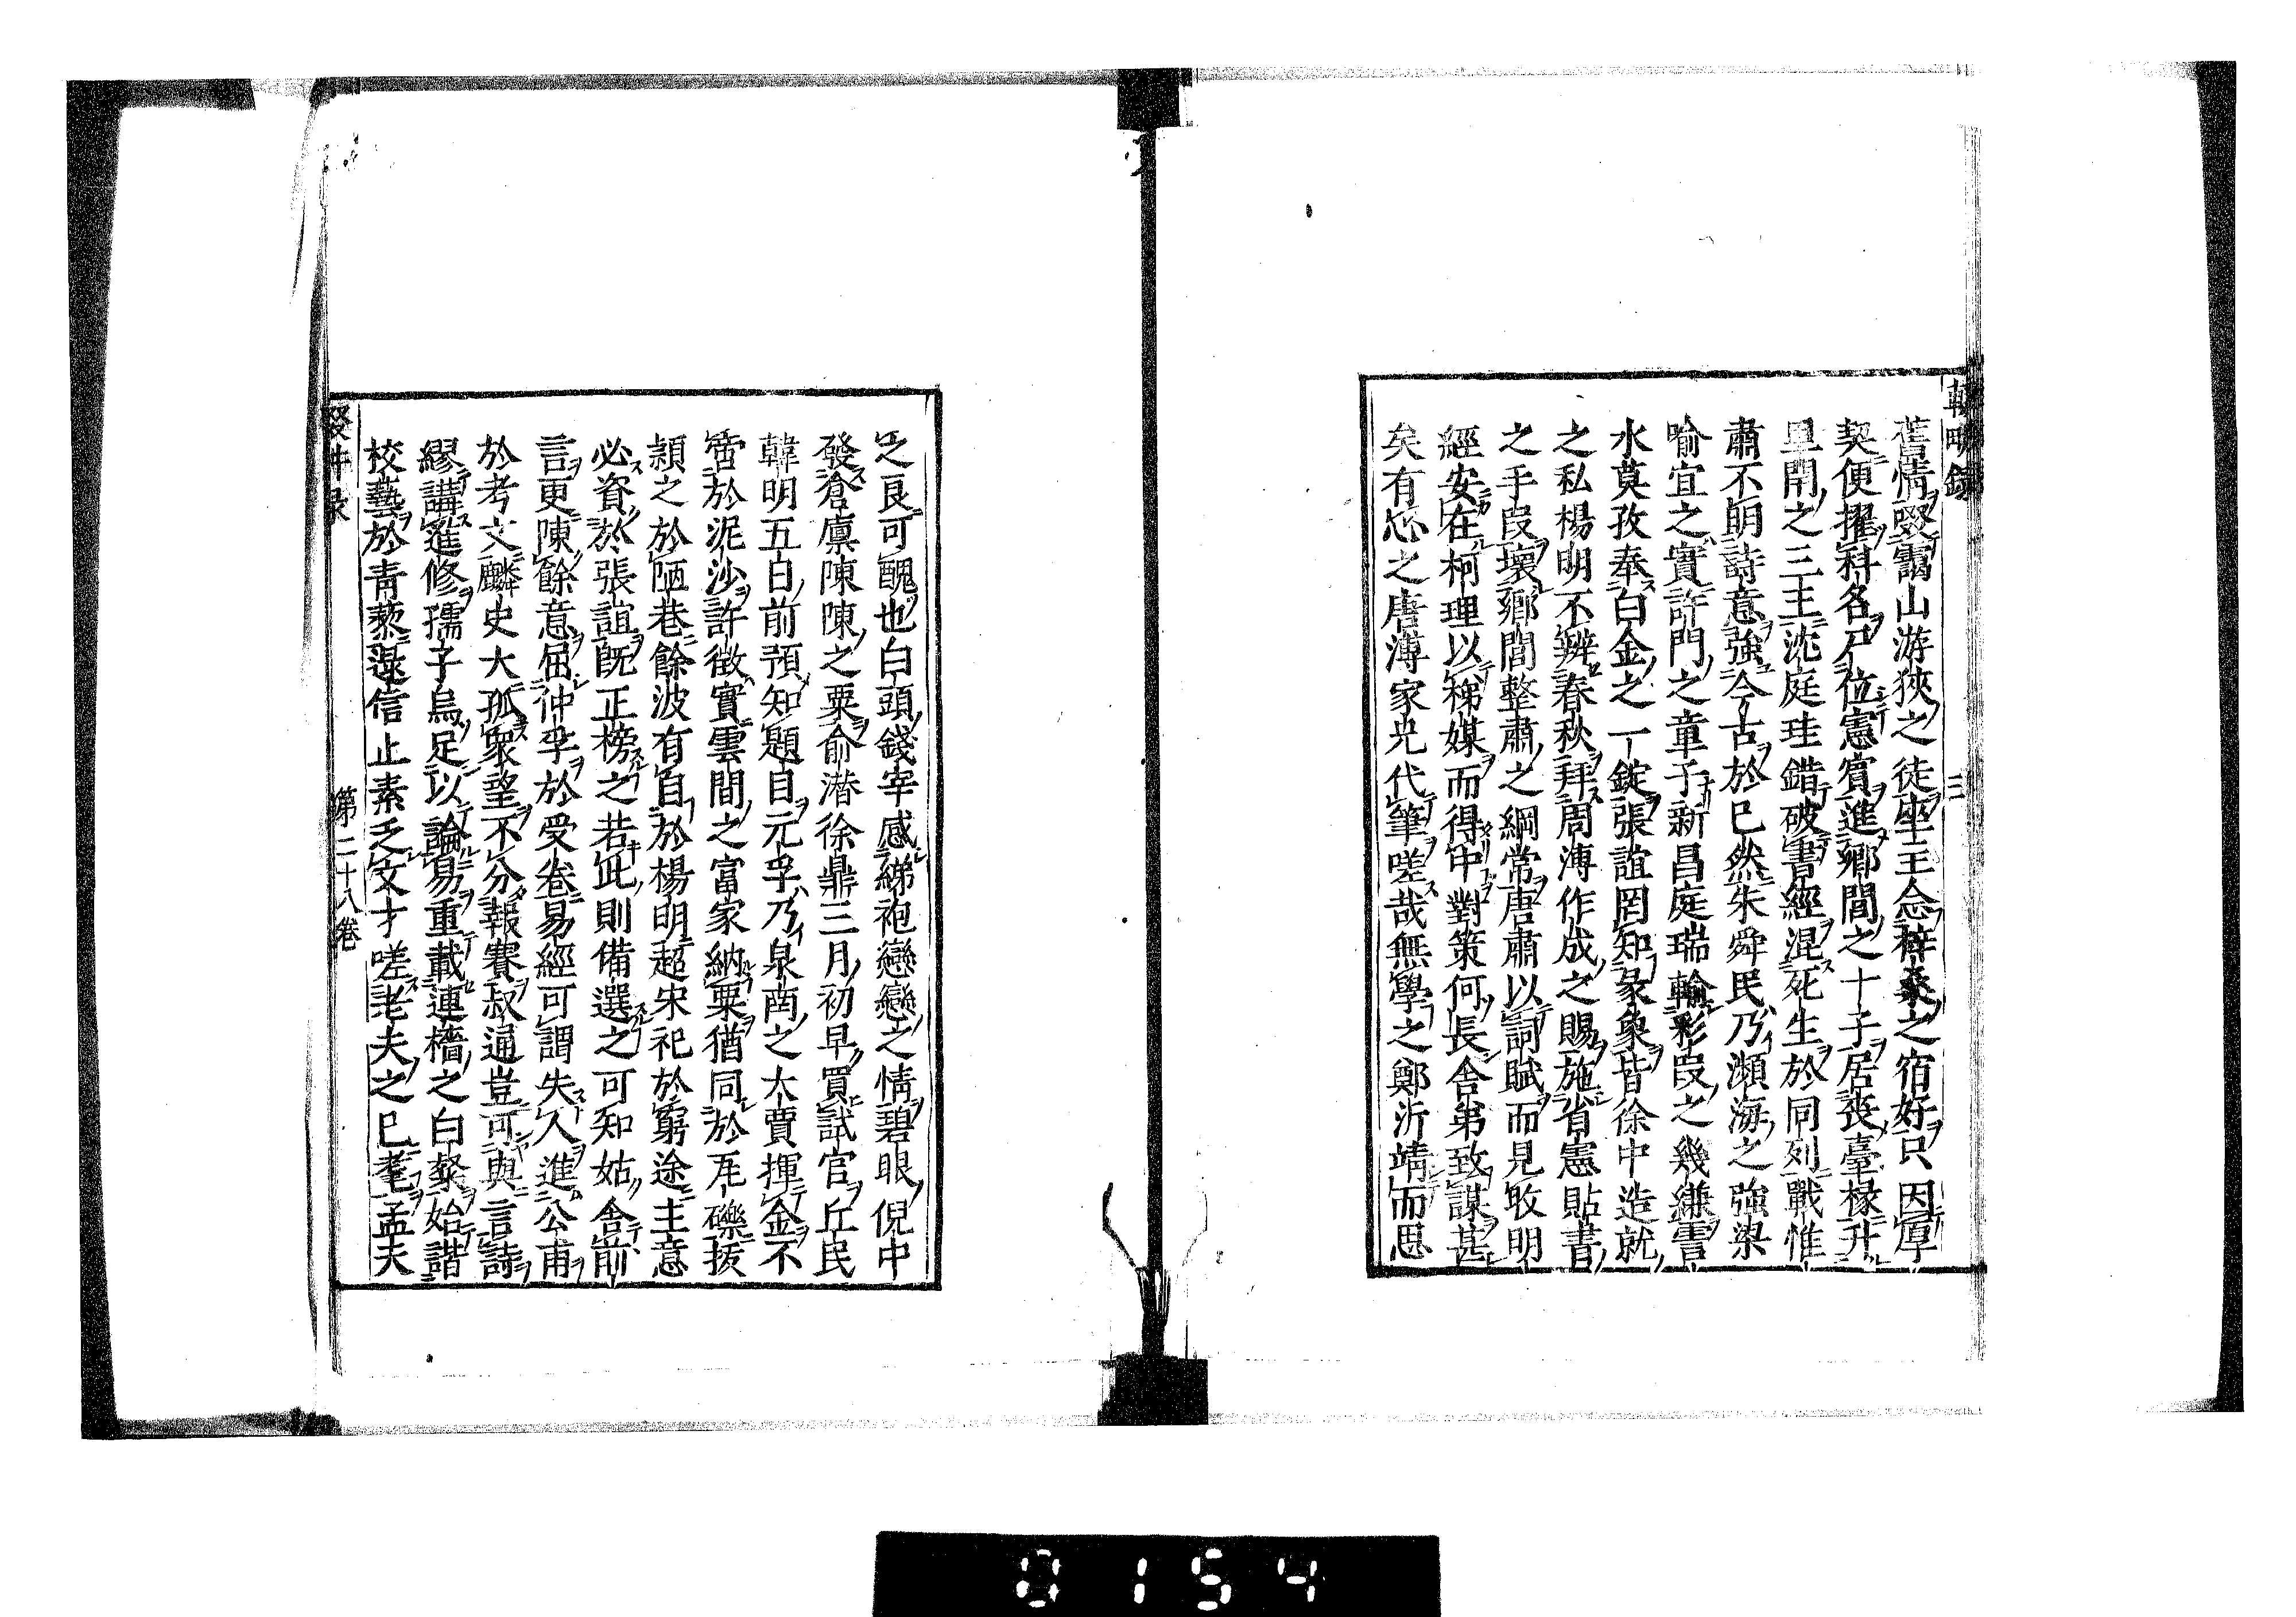 舊情啜靄山游狹之徒座主念梓桑之宿好只因厚
契便擢科名尸位憲賓進鄉間之十子居喪臺椽升
里閈之三王沈庭珪錯破書經混死生於同列戰惟
肅不明詩意強今古於巳然朱舜民乃瀕海之強梁
喻宜之實許門之童子新昌庭瑞輸彩段之幾縑霅
水莫孜奉白金之一錠張誼罔知彖象皆徐中造就
之私楊明不辨春秋拜周溥作成之賜施省憲貼書
之手段壞鄉間整肅之綱常唐肅以詞賦而見收明
經安在柯理以稊媒而得中對策何長舍弟致謀甚
矣有忝之唐溥家兄代筆嗟哉無學之鄭沂靖而思
三
之良可醜也白頭錢宰感綈袍戀戀之情碧眼倪中
發滄廩陳陳之粟俞潜徐鼎三月初早買試官丘民
韓明五日前預知題目元孚乃泉南之大賈揮金不
啻於泥沙許徵實雲間之富家納粟猶同於瓦礫拔
潁之於陋巷餘波有自於楊明超宋祀於窮途主意
必資於張誼旣正榜之若此則備選之可知姑舍前
言更陳餘意屈仲孚於受卷易經可謂失人進公甫
於考文麟史大孤衆望不分報賽叔逼豈可與言詩
繆講進修孺子烏足以論易重載連檣之白粲始諧
校藝於青藜逯信止素乏文才嗟老夫之巳耄孟夫
第二十八卷